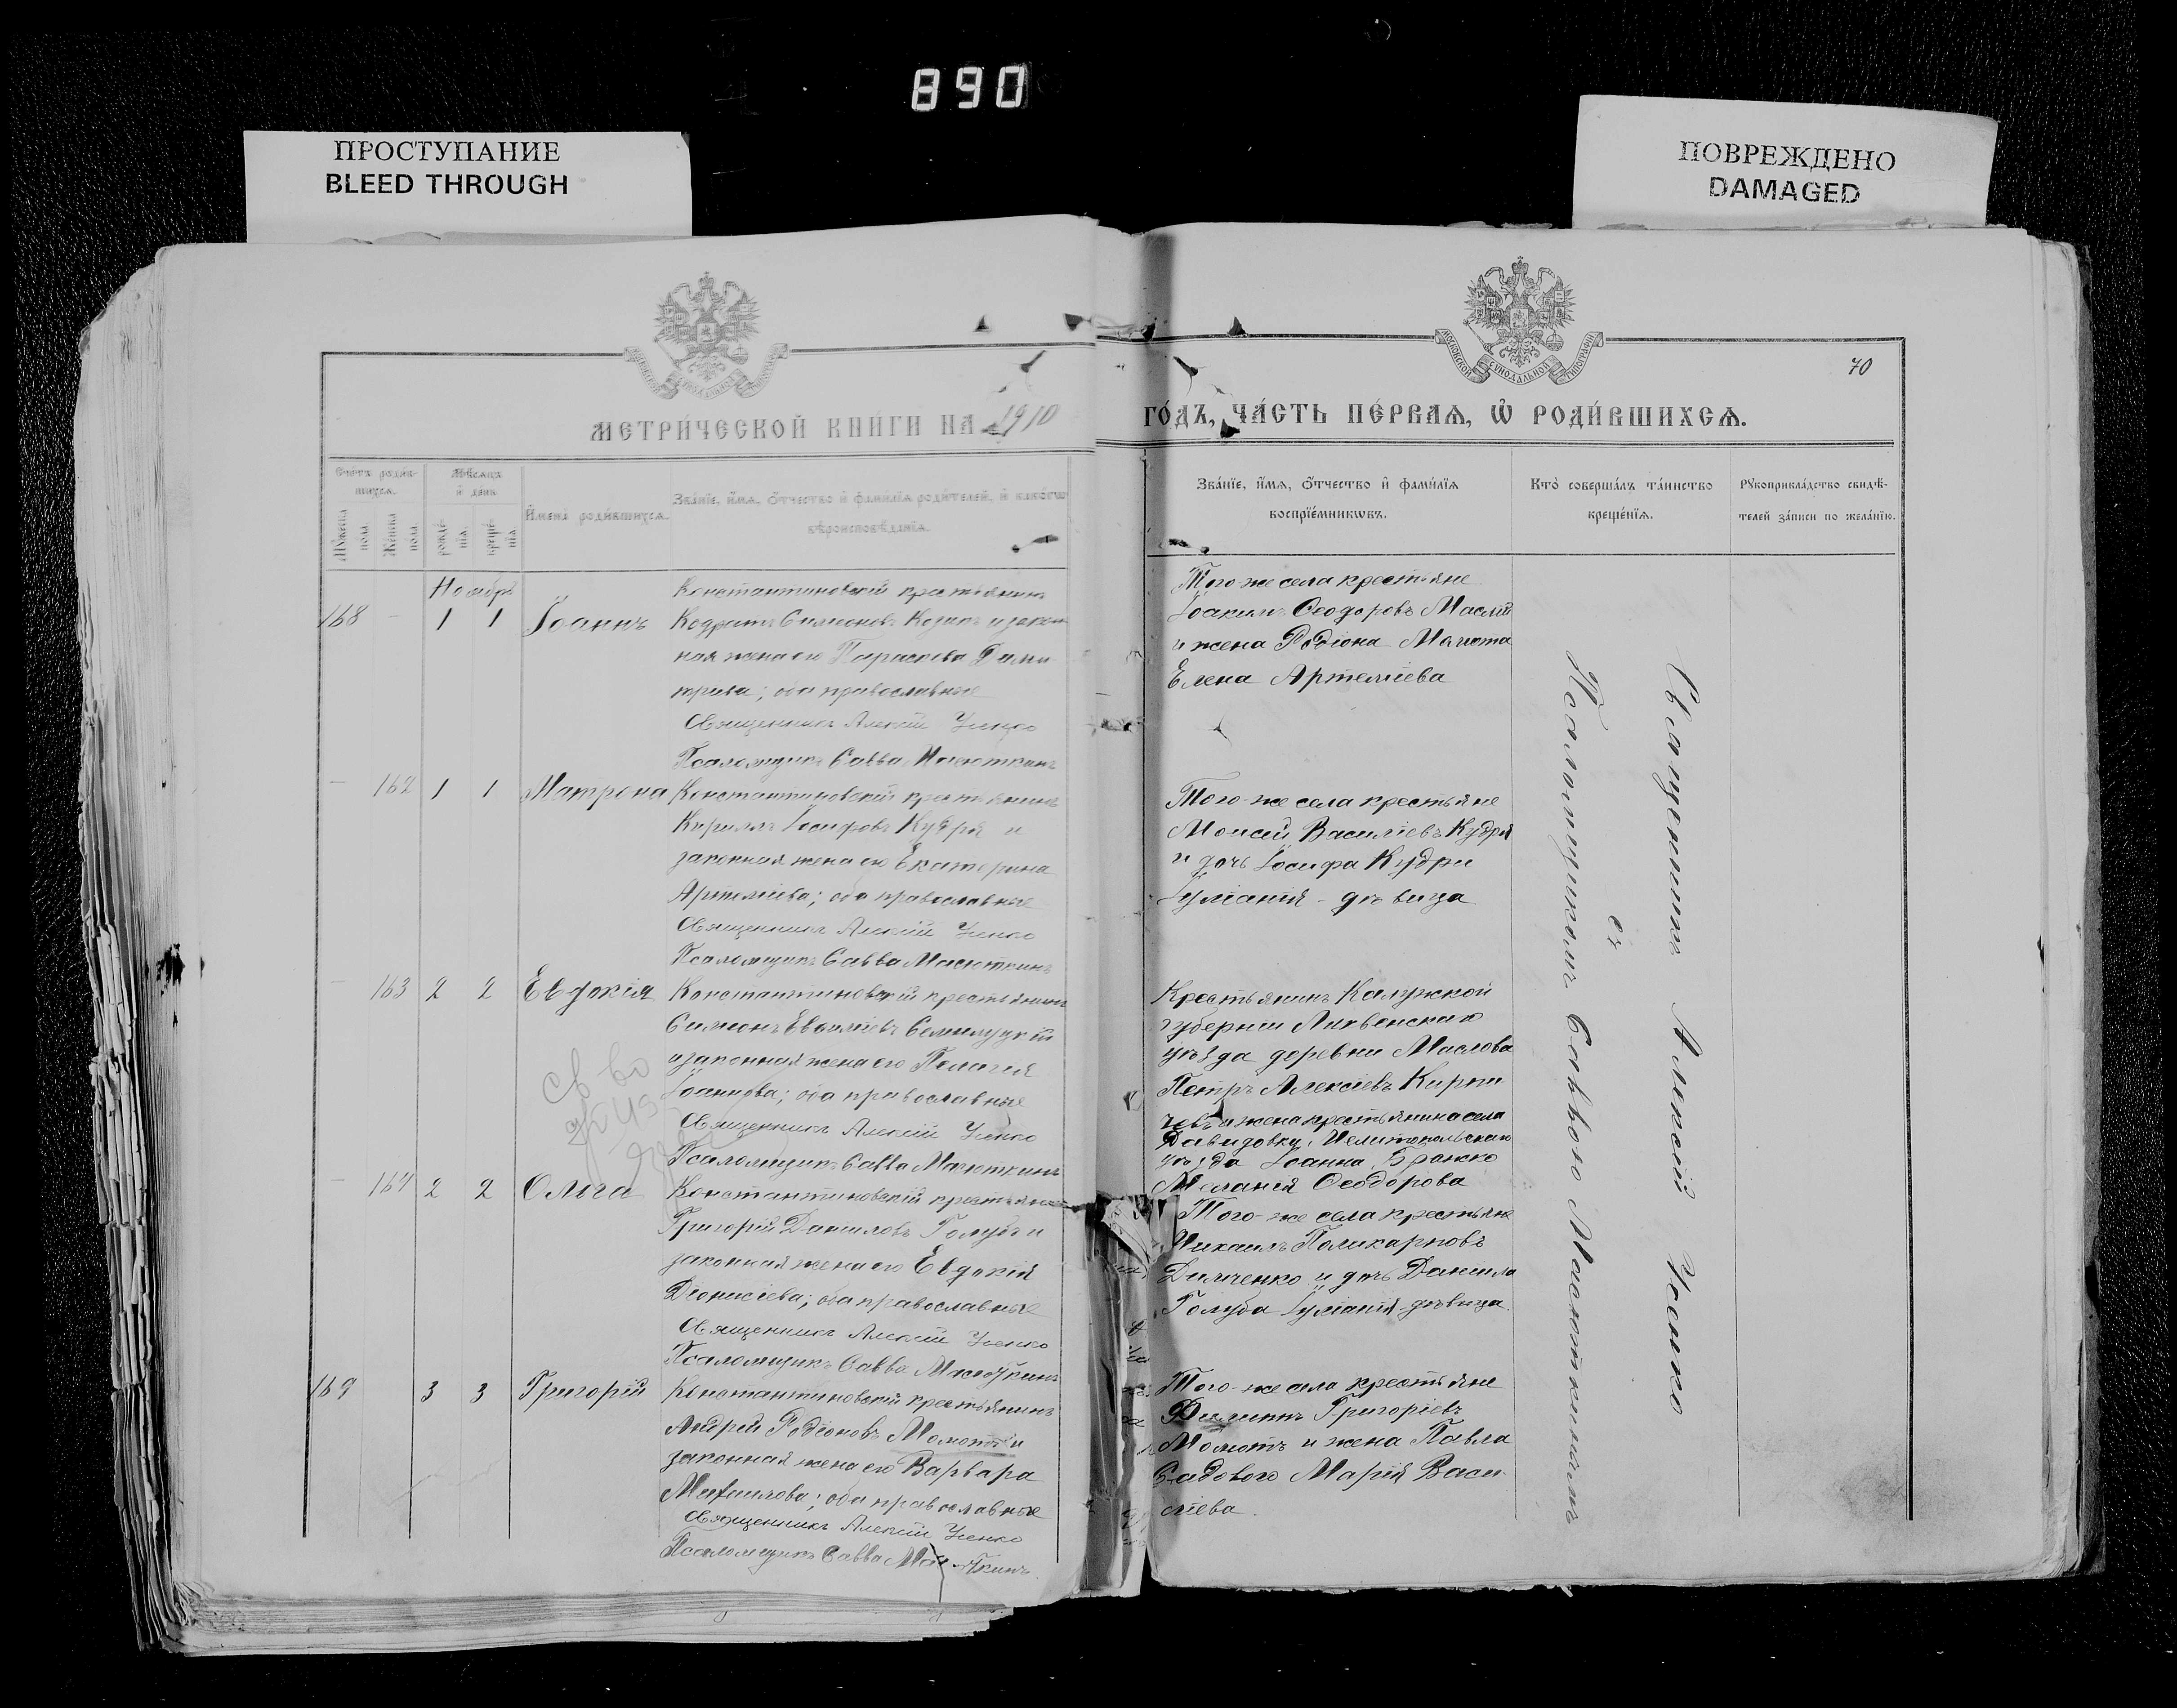 890
ПРОСТУПАНИЕ
BLEED THROUGH
ПОВРЕЖДЕНО
DAMAGED
70
МЕТРИ́ЧЕСКОЙ КНИ́ГИ НА 1910
ГО́ДЪ, ЧА́СТЬ ПЕ́РВАѦ, Ѡ҆ РОДИ́ВШИХСѦ.
Счетъ роди́вшихсѧ.
Мꙋжеска пола.
Женска пола.
Мѣсѧцъ и҆ день
рожде́нїѧ.
креще́нїѧ.
И҆мена̀ роди́вшихсѧ.
Зва́нїе, и҆́мѧ, ѻ҆́тчество и҆ фами́лїѧ роди́телей, и҆ како́гѡ
вѣроисповѣ́данїѧ.
Зва́нїе, и҆́мѧ, ѻ҆́тчество и҆ фами́лїѧ
воспрїе́мникѡвъ.
Кто̀ соверша́лъ та́инство
креще́нїѧ.
Рꙋкоприкла́дство свидѣ́-
телей за́писи по жела́нїю.
Ноябрь
Константиновскій крестьянинъ
168 - 1 1 Іоаннъ Кодратъ Симеоновъ Козакъ и закон
ная жена его Параскева Дими
тріева; оба православные
Священникъ Алексій Усенко
Псаломщикъ Савва Масюткинъ
Того же села крестьяне
Іоакимъ Ѳеодоровъ Маслій
и жена Родіона Мамота
Елена Артеміева
- 162 1 1 Матрона Константиновскій крестьянинъ
Кириллъ Іосифовъ Кудря и
законная жена его Екатерина
Артеміева; оба православные
Священникъ Алексій Усенко
Псаломщикъ Савва Масюткинъ
Того-же села крестьяне
Моисей Василіевъ Кудря
и дочь Іосифа Кудри
Іуліанія - дѣвица
- 163 2 2 Евдокія Константиновскій крестьянинъ
Симеонъ
и законная жена его Пелагія
Іоаннова; оба православные
Священникъ Алексій Усенко
Псаломщикъ Савва Масюткинъ
Крестьянинъ Калужской
губерніи Лихвенскаго
уѣзда деревни Маслова
Петръ Алексіевъ Кирпи
чевъ и жена крестьянина села
Давидовки, Мелитопольскаго
уѣзда Іоанна
Меланія Ѳеодорова
- 164 2 2 Ольга Константиновскій крестьянинъ
Григорій Даниловъ Голубъ и
законная жена его Евдокія
Діонисіева; оба православные
Священникъ Алексій Усенко
Псаломщикъ Савва Масюткинъ
Того-же села крестьяне
Михаилъ Поликарповъ
Димченко и дочь Даніила
Голуба Іуліанія дѣвица.
169 3 3 Григорій Константиновскій крестьянинъ
Андрей Родіоновъ Момотъ и
законная жена его Варвара
Михаилова; оба православные
Священникъ Алексій Усенко
Псаломщикъ Савва Масюткинъ.
Того-же села крестьяне
Филиппъ Григоріевъ
Момотъ и жена Павла
Садового Марія Васи-
ліева.
Священникъ Алексій Усенко
съ
Псаломщикомъ Саввою Масюткинымъ